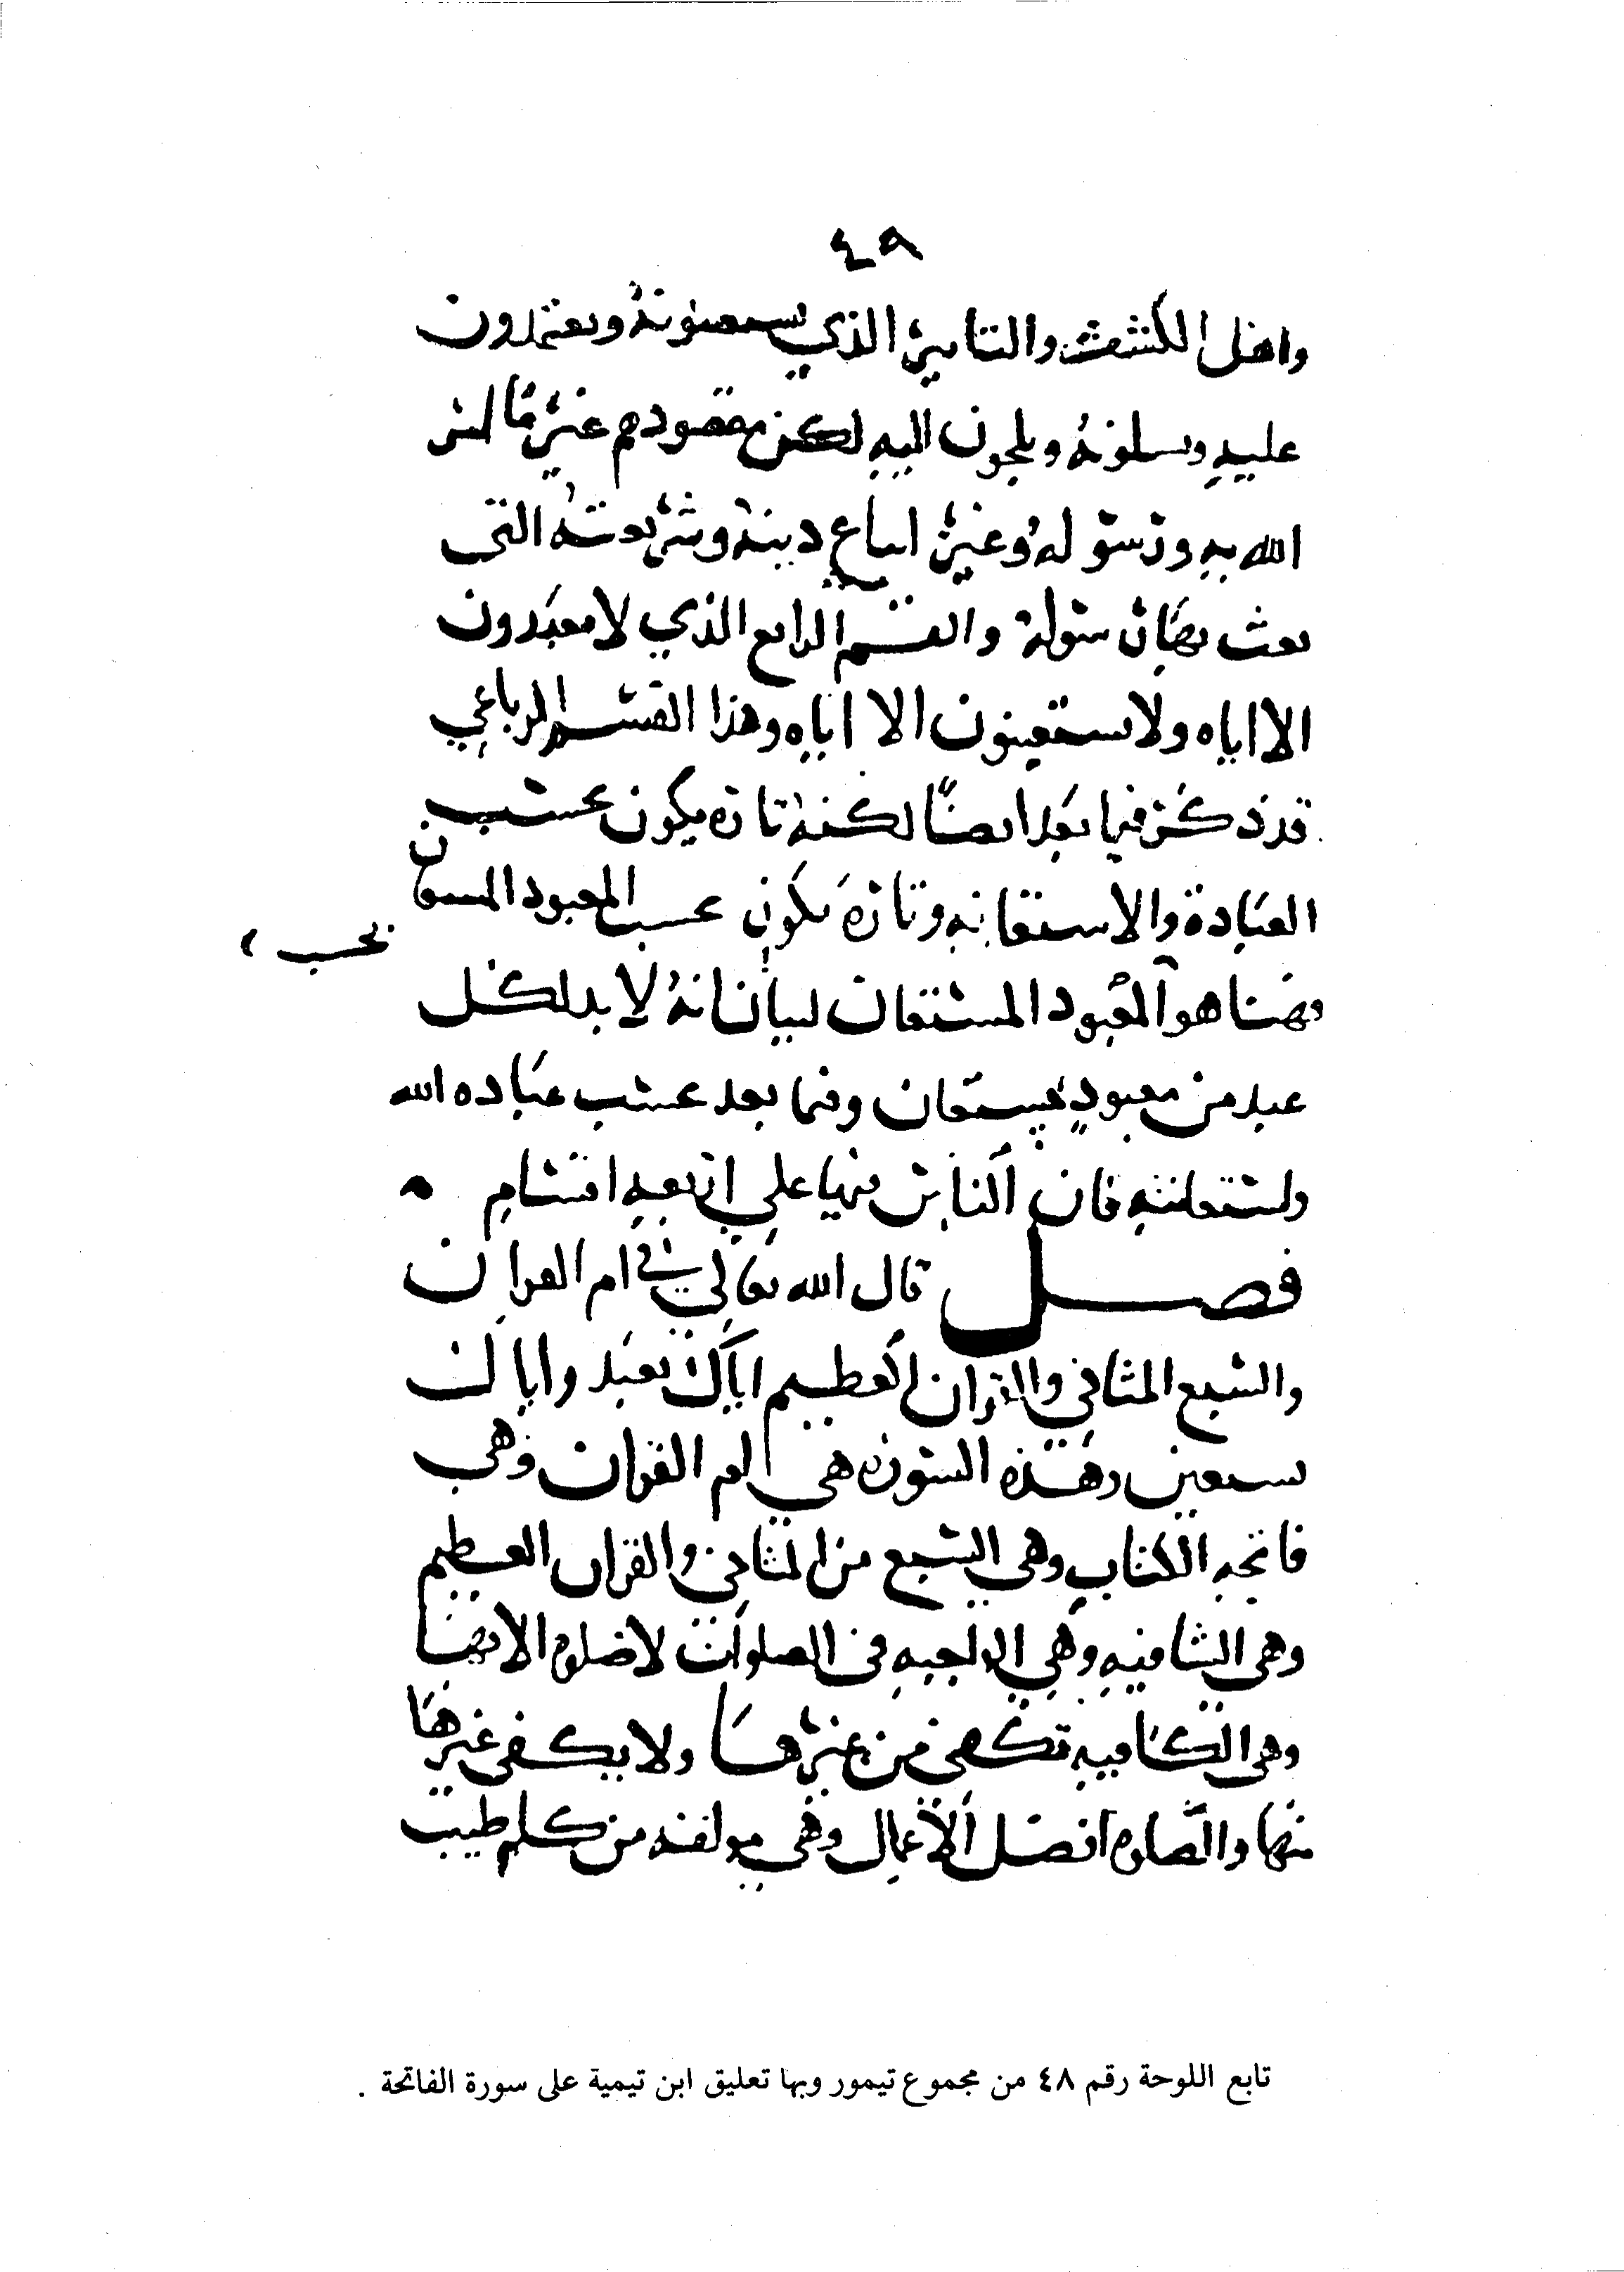 ٤٨
واهل الكشف والتاثير الذي يستعينونه ويعتمدون
عليه ويسلونه ويلجون اليه لكن مقصودهم غير ما امر
الله به ورسوله وغير اتباع دينه وشريعته التي
بعث بها رسوله والقسم الرابع الذي لا يعبدون
الا اياه ولا يستعينون الا اياه وهذا القسم الرباعي
قد ذكر فيما بعد ايضا لكنه تارة يكون بحسب
العبادة والاستعانه وتارة يكون بحسب المعبود المستعان
بحسب
فهنا هو المعبود المستعان لبيان انه لا بد لكل
عبد من معبود مستعان وفيما بعد بحسب عباده الله
واستعانته فان الناس فيها علي اربعه اقسام
فصل قال الله تعالي في ام القران
والسبع المثاني والقران العظيم اياك نعبد واياك
نستعين وهذه السوره هي ام القران وهي
فاتحه الكتاب وهي السبع من المثاني والقران العظيم
وهي الشافيه وهي الواجبه في الصلوات لا صلوه الا بها
وهي الكافيه تكفي من غيرها ولا يكفي غيرها
منها والصلوه افضل الاعمال وهي مولفه من كلم طيب
تابع اللوحة رقم ٤٨ من مجموع تيمور وبها تعليق ابن تيمية على سورة الفاتحة .